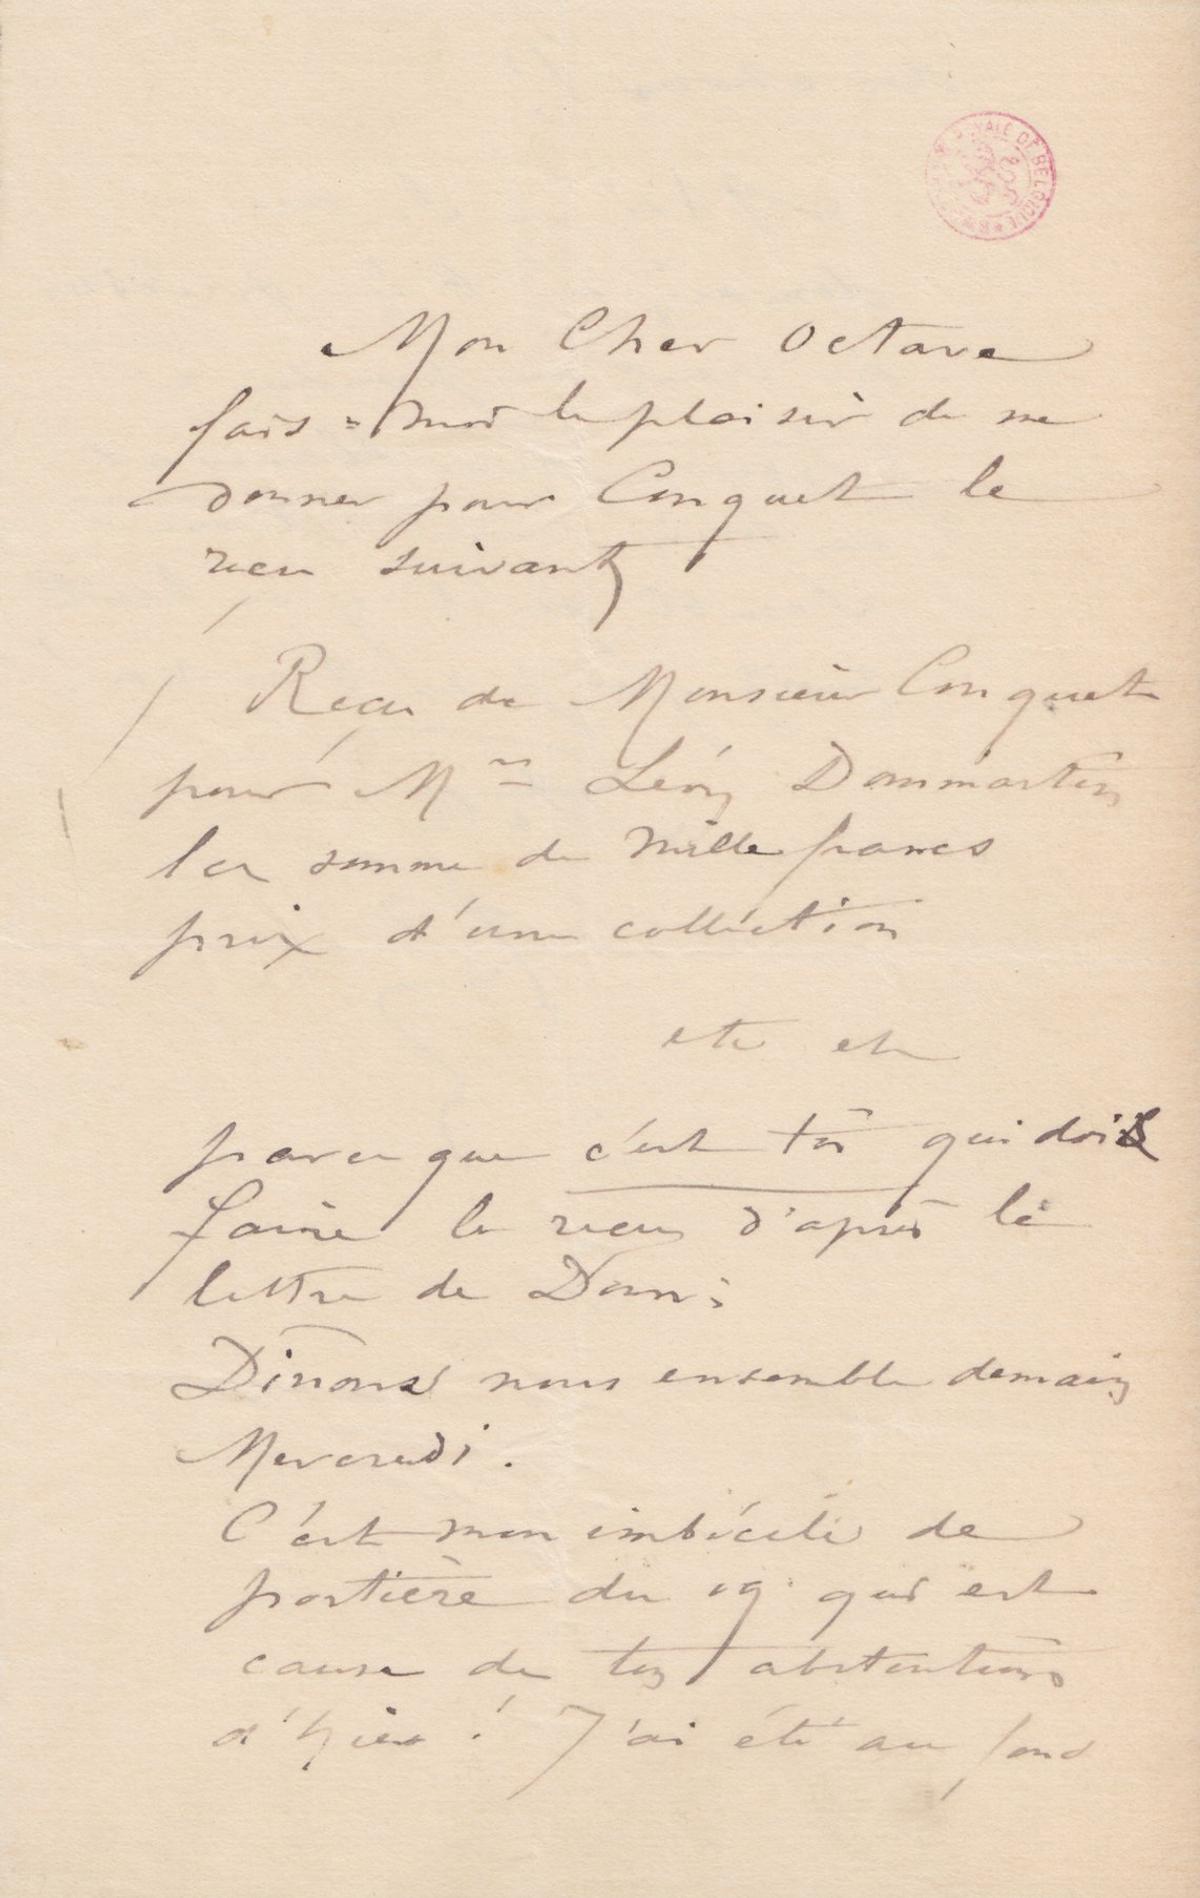 ROYALE DE BELGIQUE
Mon Cher Octave
fais=moi le plaisir de me
donner pour Conquet le
recu suivant
Reçu de Monsieur Conquet
pour Mr Léon Dommartin
la somme de Mille francs
prix d'une collection
etc etc
parce que c'est toi qui dois
faire le recu d'après la
lettre de Dom:
Dinons nous ensemble demain
Mercredi.
C'est mon imbécile de
portière du 19 qui est
cause de ton abstention
d'hier! J'ai été au fond